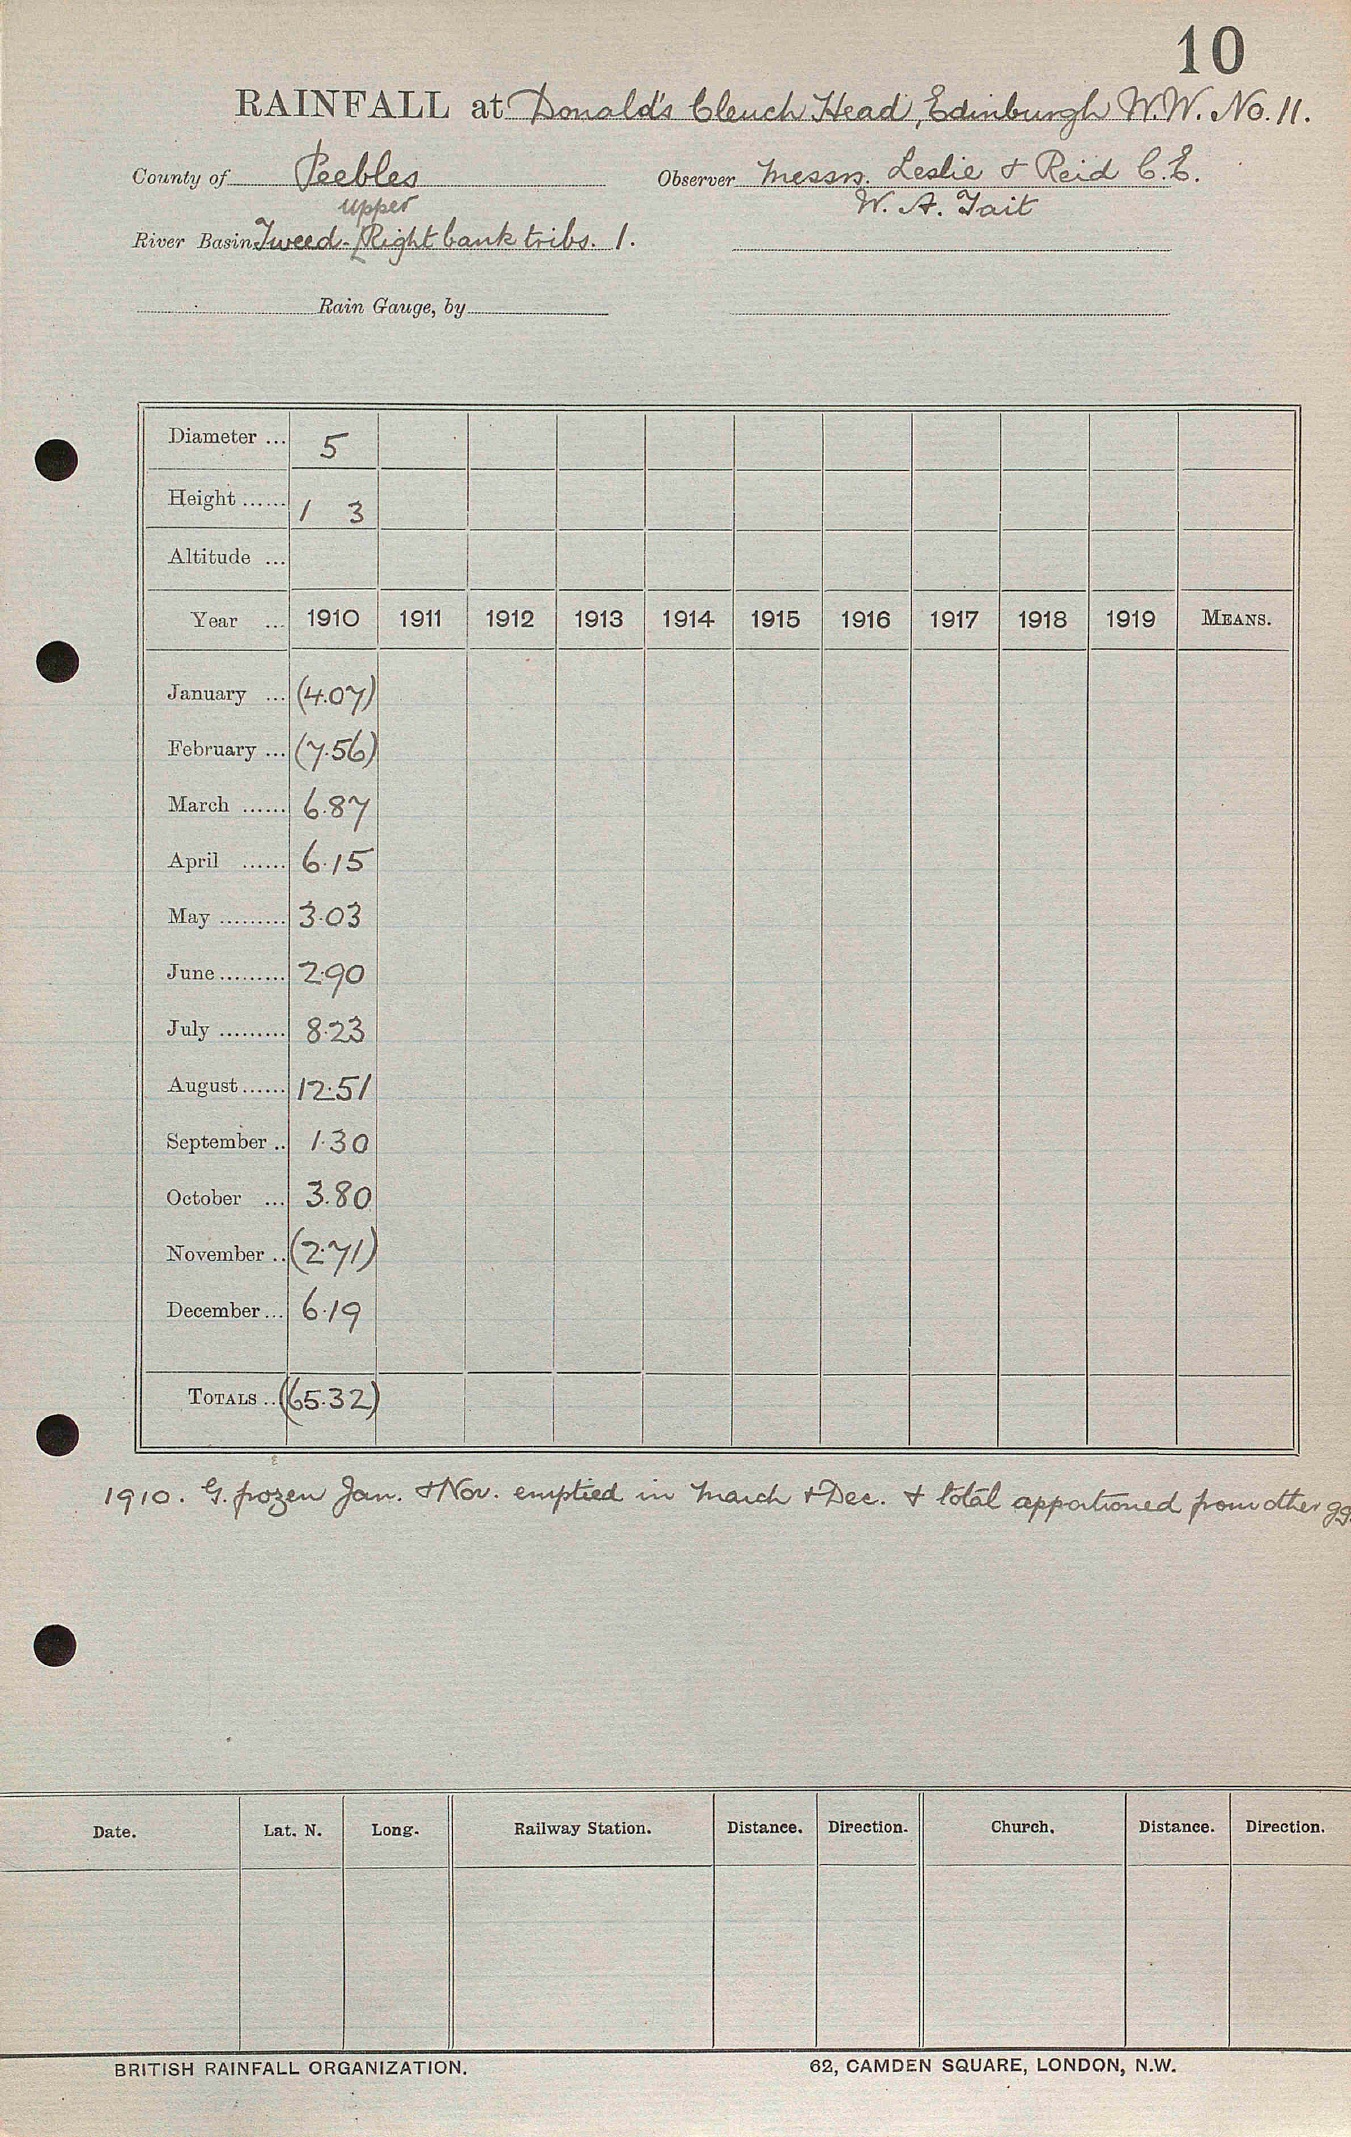 10
RAINFALL at Donald's Cleuch Head, Edinburgh W.W. No. 11.
County of Peebles Observer Messrs. Leslie & Reid C.E.
upper W. A. Tait
River Basin Tweed - [Right bank tribs. 1.
Rain Gauge, by
Diameter ... 5
Height ...... 1 3
Altitude ...
Year ... 1910 1911 1912 1913 1914 1915 1916 1917 1918 1919 MEANS.
January ... (4.07)
February ... (7.56)
March ...... 6.87
April ...... 6.15
May ......... 3.03
June ......... 2.90
July ......... 8.23
August ...... 12.51
September .. 1.30
October ... 3.80
November .. (2.71)
December ... 6.19
TOTALS .. (65.32)
1910. G. frozen Jan. & Nov. emptied in March & Dec. & total apportioned from other gs.
Date. Lat. N. Long. Railway Station. Distance. Direction. Church. Distance. Direction.
BRITISH RAINFALL ORGANIZATION. 62, CAMDEN SQUARE, LONDON, N.W.